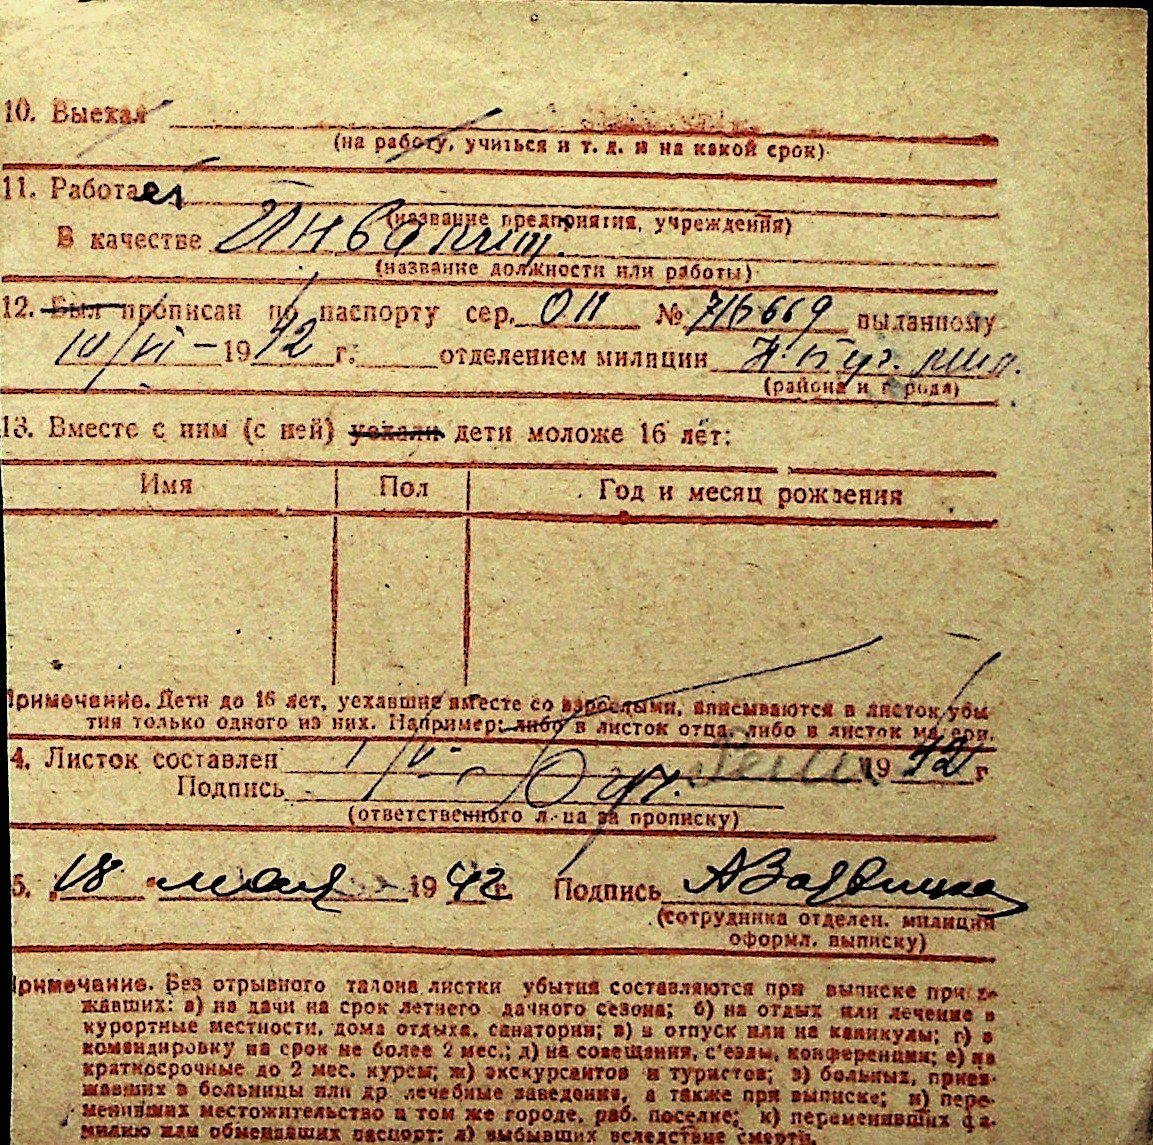 10. Выехал
(на работу, учиться и т. д. и на какой срок)
11. Работает
(название предприятия, учреждения)
В качестве Инвалид.
(название должности или работы)
12. Был прописан по паспорту сер. ОП № 716669 выданному
10/VI – 1942 г. отделением милиции
(района и города)
13. Вместе с ним (с ней) уехали дети моложе 16 лет:
Имя Пол Год и месяц рождения
Примечание. Дети до 16 лет, уехавшие вместе со взрослыми, вписываются в листок убы-
тия только одного из них. Например: либо в листок отца, либо в листок матери.
4. Листок составлен 1942 г
Подпись
(ответственного л-ца за прописку)
5. 18 мая 1942 г. Подпись
(сотрудника отделен. милиции
оформл. выписку)
Примечание. Без отрывного талона листки убытия составляются при выписке приез-
жавших: а) на дачи на срок летнего дачного сезона; б) на отдых или лечение в
курортные местности, дома отдыха, санатории; в) в отпуск или на каникулы; г) в
командировку на срок не более 2 мес.; д) на совещания, с'езды, конференции; е) на
краткосрочные до 2 мес. курсы; ж) экскурсантов и туристов; з) больных, приез-
жавших в больницы или др лечебные заведения, а также при выписке; и) пере-
менивших местожительство в том же городе, раб. поселке; к) переменивших фа-
милию или обменявших паспорт; л) выбывших вследствие смерти.